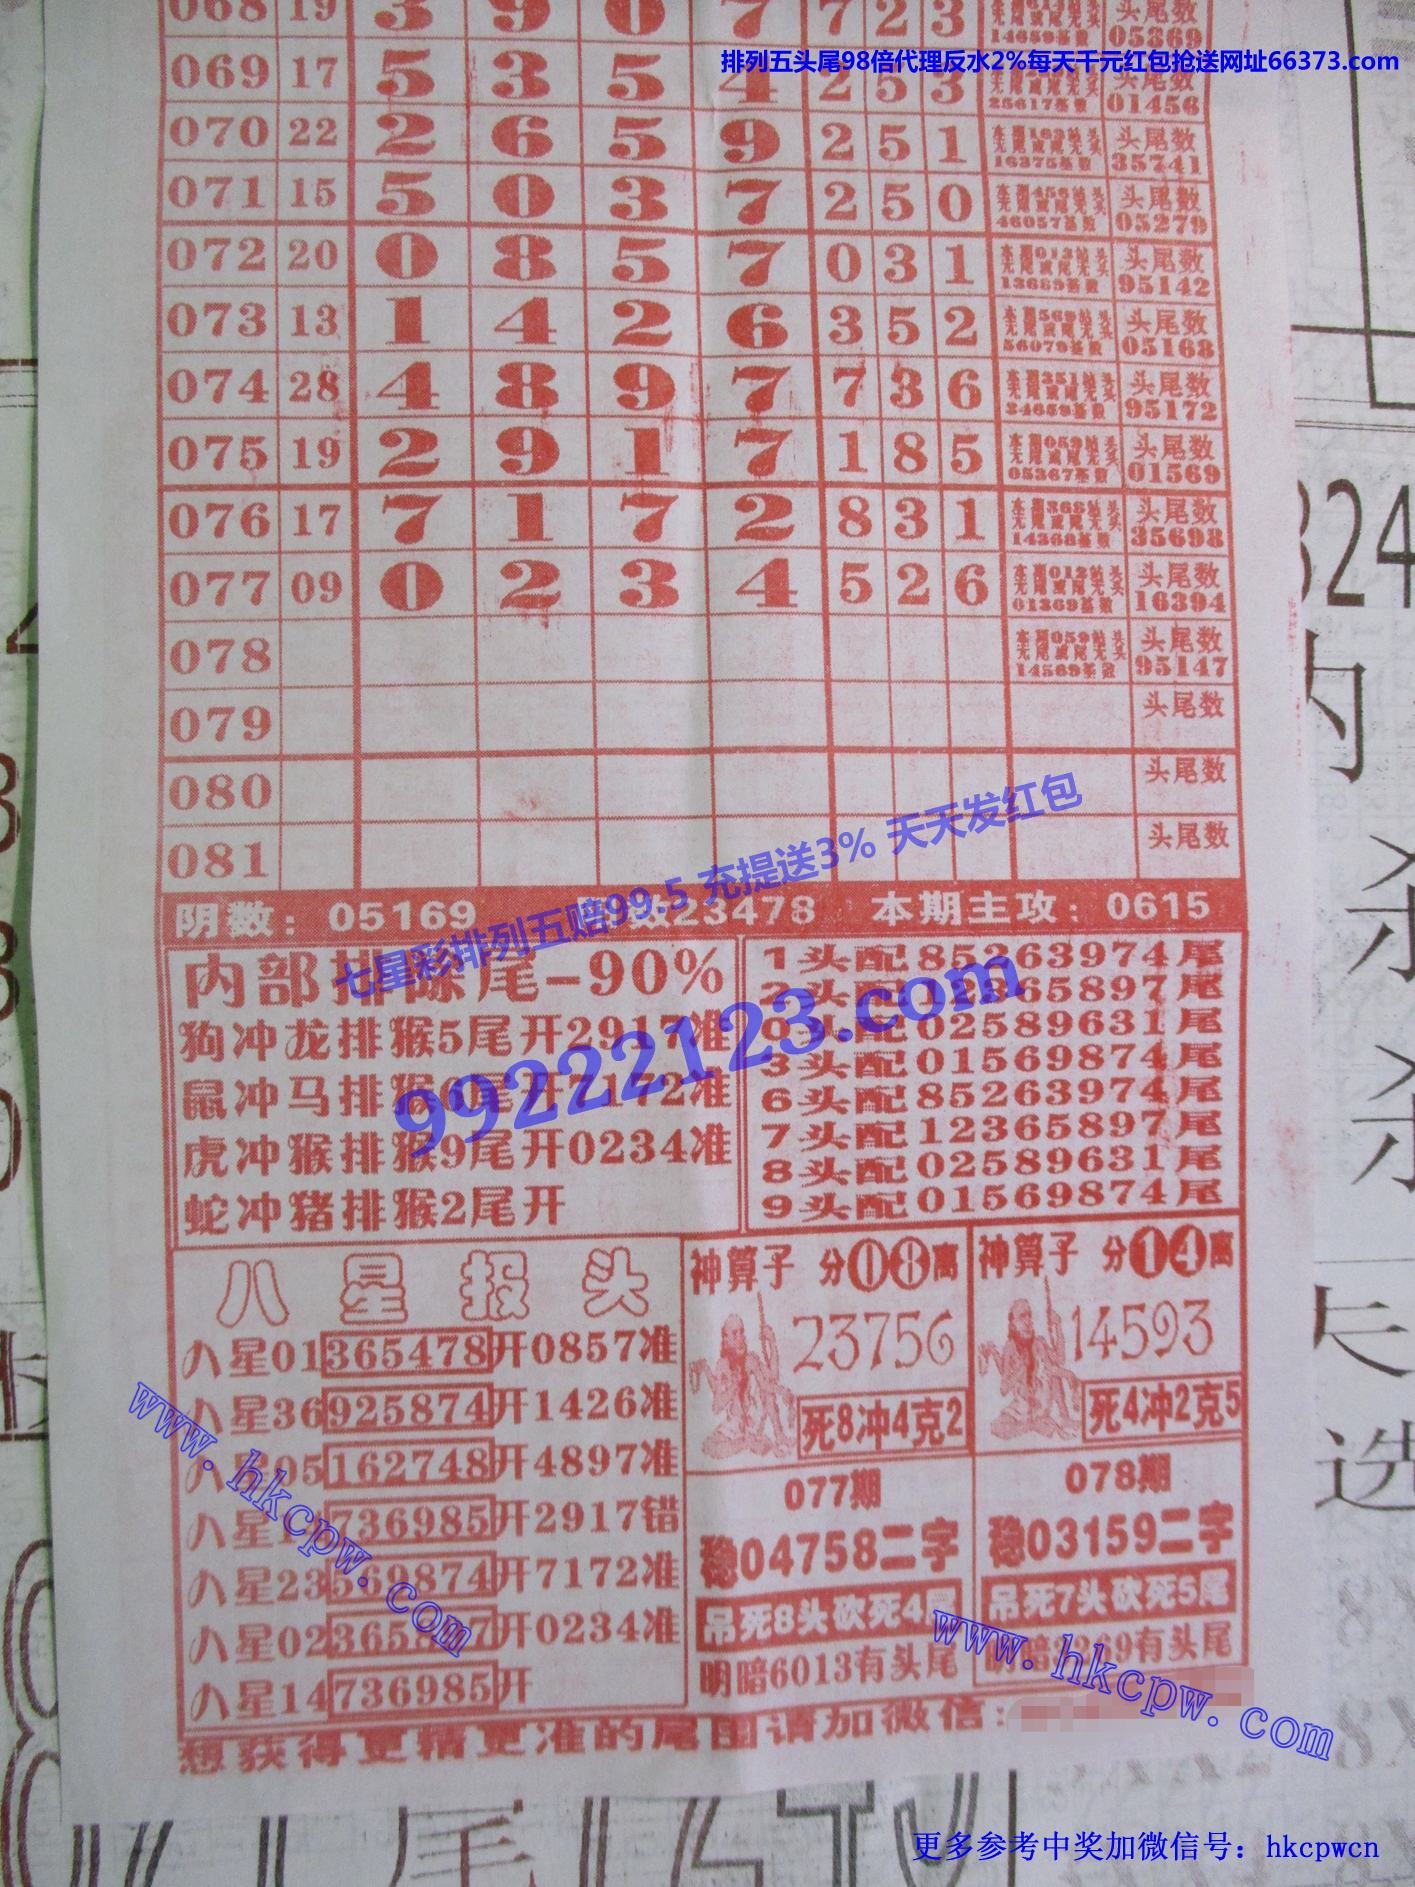 068 19 3 9 0 7 7 2 3 头尾数 05369
排列五头尾98倍代理反水2%每天千元红包抢送网址66373.com
069 17 5 3 5 4 2 5 3 25617基数 头尾数 01456
070 22 2 6 5 9 2 5 1 16375基数 头尾数 35741
071 15 5 0 3 7 2 5 0 46057基数 头尾数 05279
072 20 0 8 5 7 0 3 1 13689基数 头尾数 95142
073 13 1 4 2 6 3 5 2 56079基数 头尾数 05168
074 28 4 8 9 7 7 3 6 34689基数 头尾数 95172
075 19 2 9 1 7 1 8 5 05367基数 头尾数 01569
076 17 7 1 7 2 8 3 1 14368基数 头尾数 35698
077 09 0 2 3 4 5 2 6 01369基数 头尾数 16394
078 14569基数 头尾数 95147
079 头尾数
080 头尾数
081 头尾数
七星彩排列五赔99.5 充提送3% 天天发红包
99222123.com
阴数：05169 数23478 本期主攻：0615
内部排除尾-90%
狗冲龙排猴5尾开2917准
鼠冲马排猴6尾开7172准
虎冲猴排猴9尾开0234准
蛇冲猪排猴2尾开
1头配85263974尾
2头配12365897尾
0头配02589631尾
3头配01569874尾
6头配85263974尾
7头配12365897尾
8头配02589631尾
9头配01569874尾
八星报头
八星01365478开0857准
八星36925874开1426准
八星05162748开4897准
八星1 736985开2917错
八星23569874开7172准
八星02365897开0234准
八星14736985开
神算子 分08离
23756
死8冲4克2
077期
稳04758二字
吊死8头砍死4尾
明暗6013有头尾
神算子 分14离
14593
死4冲2克5
078期
稳03159二字
吊死7头砍死5尾
明暗 269有头尾
想获得更精更准的尾图请加微信:
www.hkcpw.com
www.hkcpw.com
更多参考中奖加微信号：hkcpwcn
324
杀
杀
尾
选